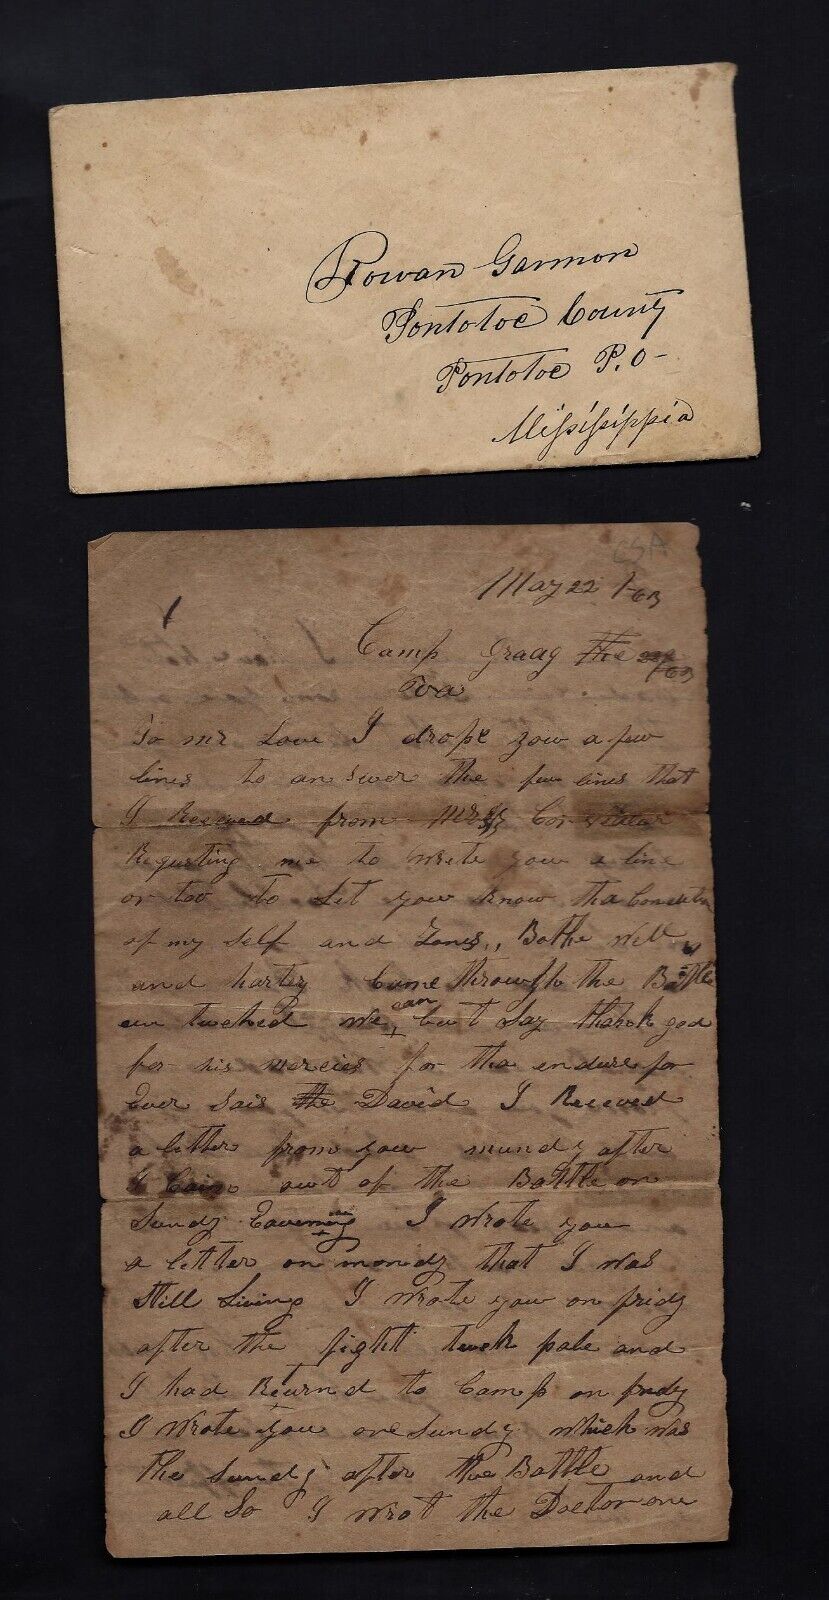 Rowan Gammon
Pontotoc County
Pontotoc P.O-
Mississippia
CSA
May 22 /63
1
Camp Graag the 22d /63
Va
To mr Love I drope yow a few
lines to answer the few lines that
I Receeved from
Requsting me to Write yow a line
or too to Let yow know tha
of my self and Jones,, Bothe Well
and hartey Came throwgh the Battle
un tuched We can but Say thank god
for his mercies for tha endure for
Ever Sais the David I Receved
a letter from yow mundy after
I Caim owt of the Battle on
Sundy I Wrote you
a letter on mondy that I was
Still Living I Wrote yow on fridy
after the fight twok pale and
I had Returnd to Camp on fridy
I Wrote You one Sundy which was
the Sundy after the Battle and
all So I Wrot the Doctor one